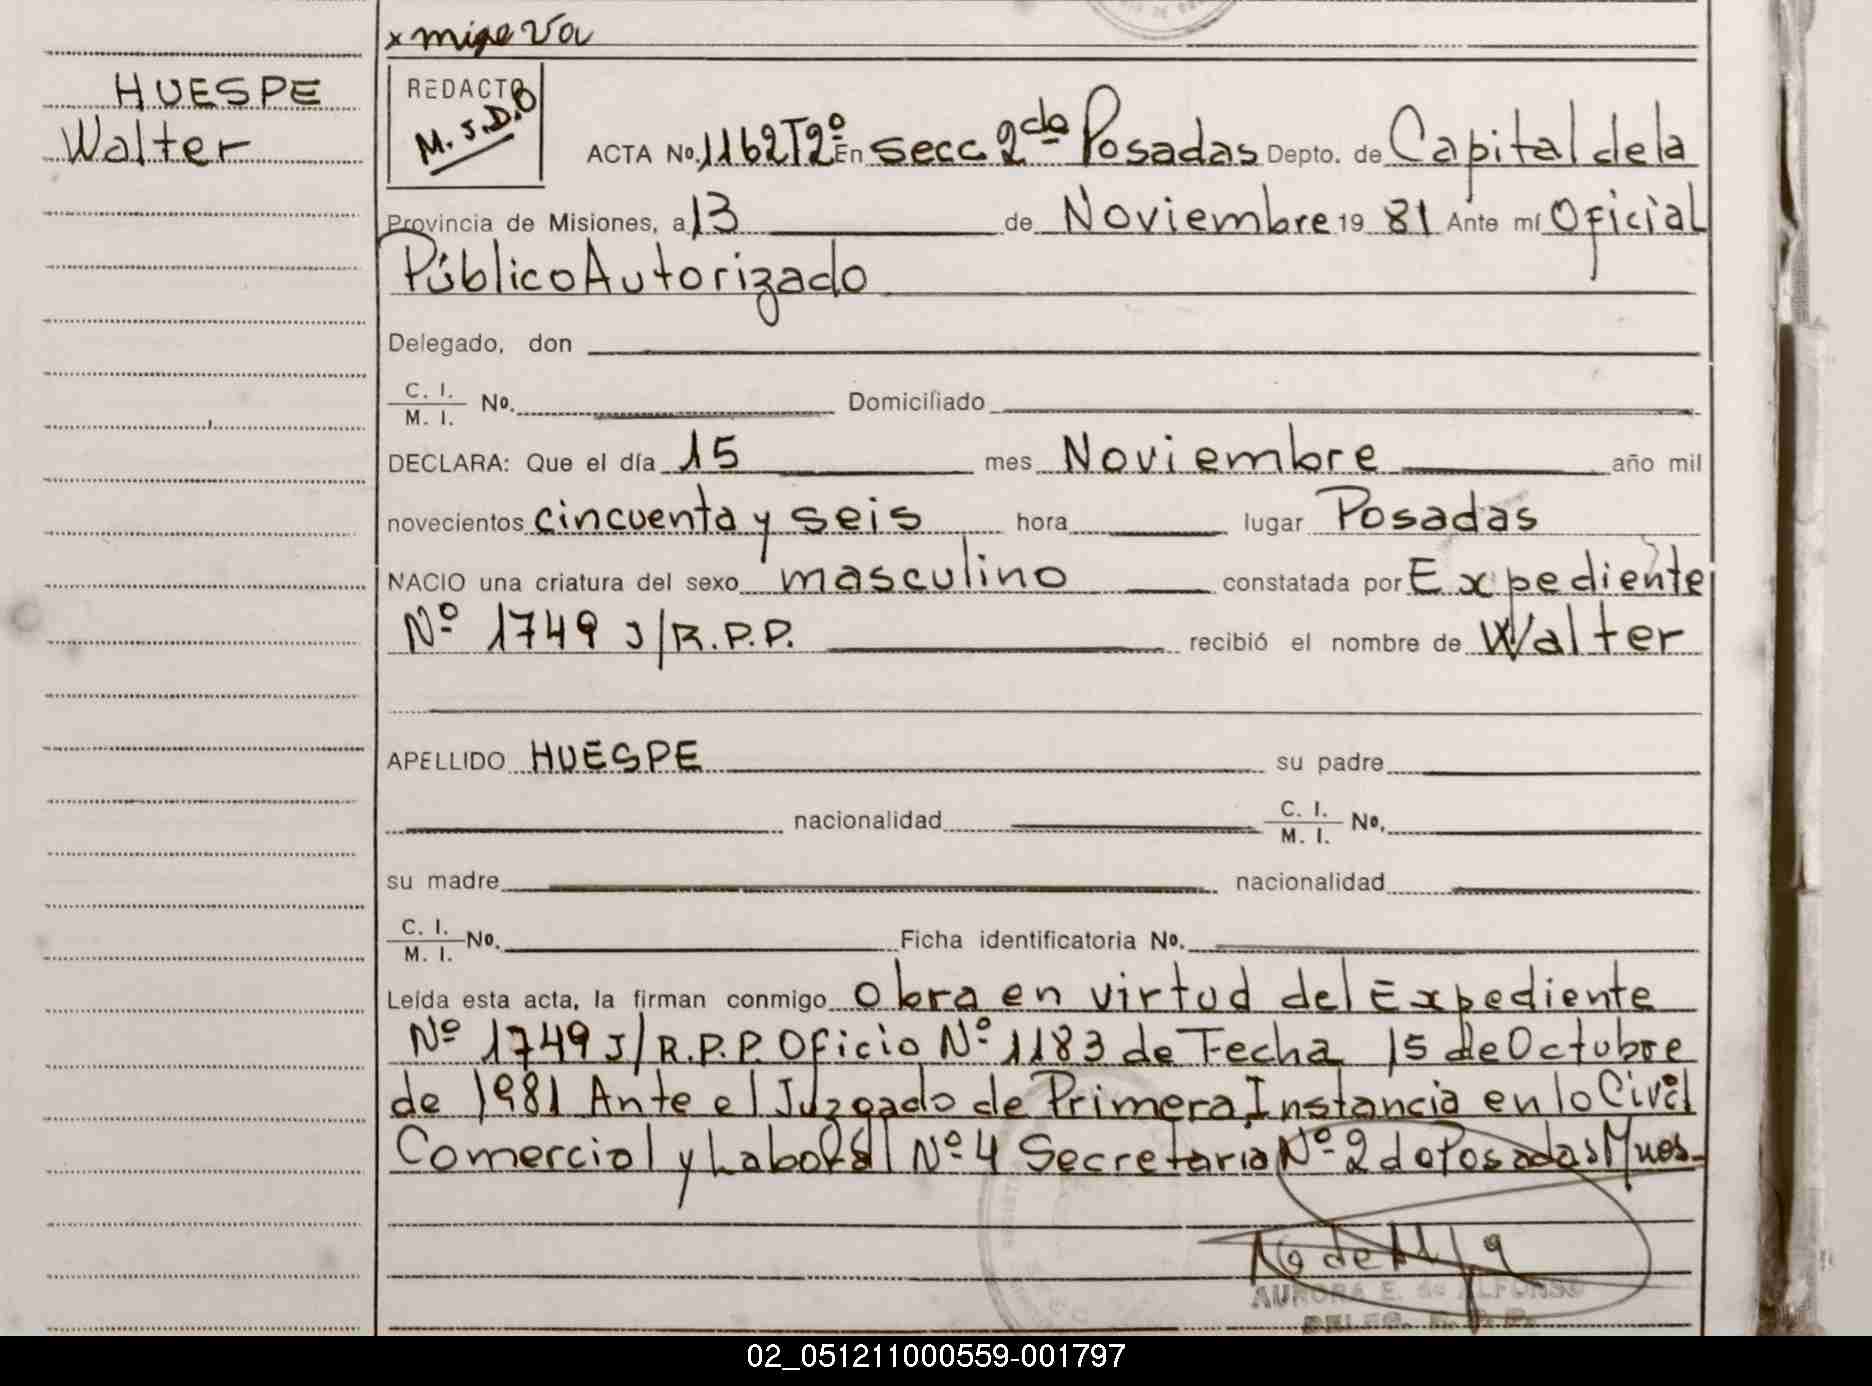 HUESPE
Walter
REDACTO
M.J.D.B
ACTA No. 1162T2º En secc 2da Posadas Depto. de Capital de la
Provincia de Misiones, a 13 de Noviembre 19 81 Ante mí Oficial
Público Autorizado
Delegado, don
C. I.
M. I. No. Domiciliado
DECLARA: Que el día 15 mes Noviembre año mil
novecientos cincuenta y seis hora lugar Posadas
NACIO una criatura del sexo masculino constatada por Expediente
Nº 1749 J/R.P.P. recibió el nombre de Walter
APELLIDO HUESPE su padre
nacionalidad C. I.
M. I. No.
su madre nacionalidad
C. I.
M. I. No. Ficha identificatoria No.
Leída esta acta, la firman conmigo Obra en virtud del Expediente
Nº 1749 J/R.P.P. Oficio Nº 1183 de Fecha 15 de Octubre
de 1981 Ante el Juzgado de Primera Instancia en lo Civil
Comercial y Laboral Nº 4 Secretaria Nº 2 de Posadas Mnes.
AURORA E. de ALFONSO
DELEG. R. P. P.
02_051211000559-001797